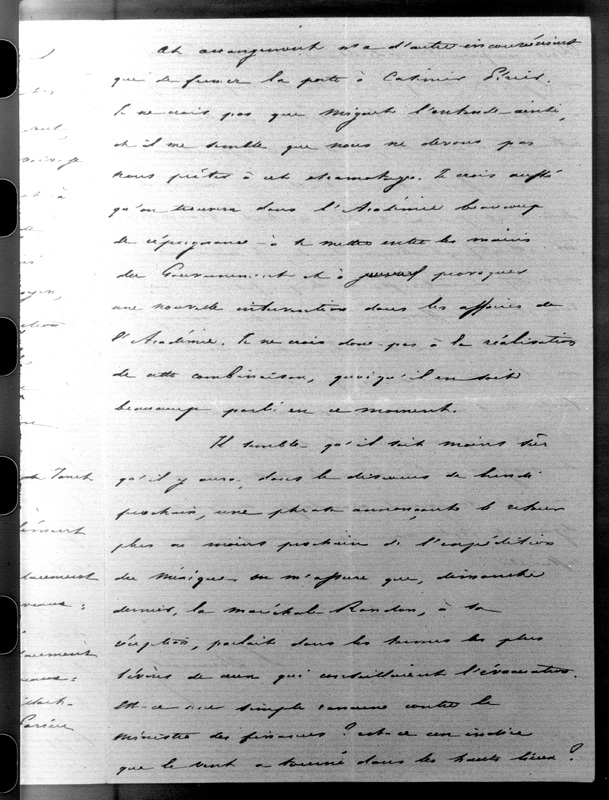 Cet arrangement n'a d'autre inconvénient
que de fermer la porte à Casimir Périer.
Je ne crois pas que Mignet l'entende ainsi,
et il me semble que nous ne devons pas
nous prêter à cet Je crois aussi
qu'on trouvera dans l'Académie beaucoup
de répugnance à se mettre entre les mains
du Gouvernement et à provoquer
une nouvelle intervention dans les affaires de
l'Académie. Je ne crois donc pas à la réalisation
de cette combinaison, quoiqu'il en soit
beaucoup parlé en ce moment.
Il semble qu'il soit moins sûr
qu'il y aura, dans le discours de lundi
prochain, une phrase annonçant le retour
plus ou moins prochain de l'expédition
du Mexique. On m'assure que, dimanche
dernier, la maréchale Randon, à sa
réception, parlait dans les termes les plus
sévères de ceux qui conseillaient l'évacuation.
Est-ce une simple contre le
Ministre des finances ? est-ce un indice
que le vent a tourné dans les hauts lieux ?